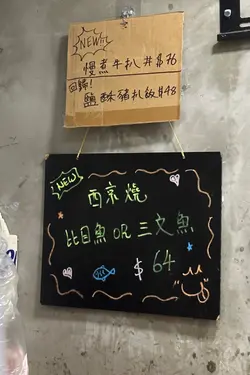 NEW!!
慢煮牛扒丼$76
回歸!
鹽酥豬扒飯$48
NEW!
西京燒
比目魚 OR 三文魚
$64